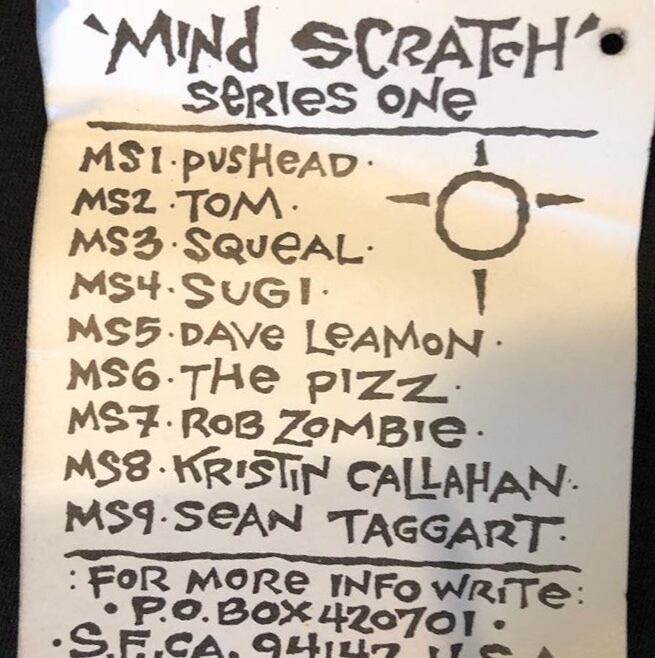 'MIND SCRATCH'
SERIES ONE
MS1·PUSHEAD·
MS2·TOM·
MS3·SQUEAL·
MS4·SUGI·
MS5·DAVE LEAMON·
MS6·THE PIZZ·
MS7·ROB ZOMBIE·
MS8·KRISTIN CALLAHAN·
MS9·SEAN TAGGART·
:FOR MORE INFO WRITE:
·P.O. BOX 420701·
·S.F. CA. 94142 U.S.A